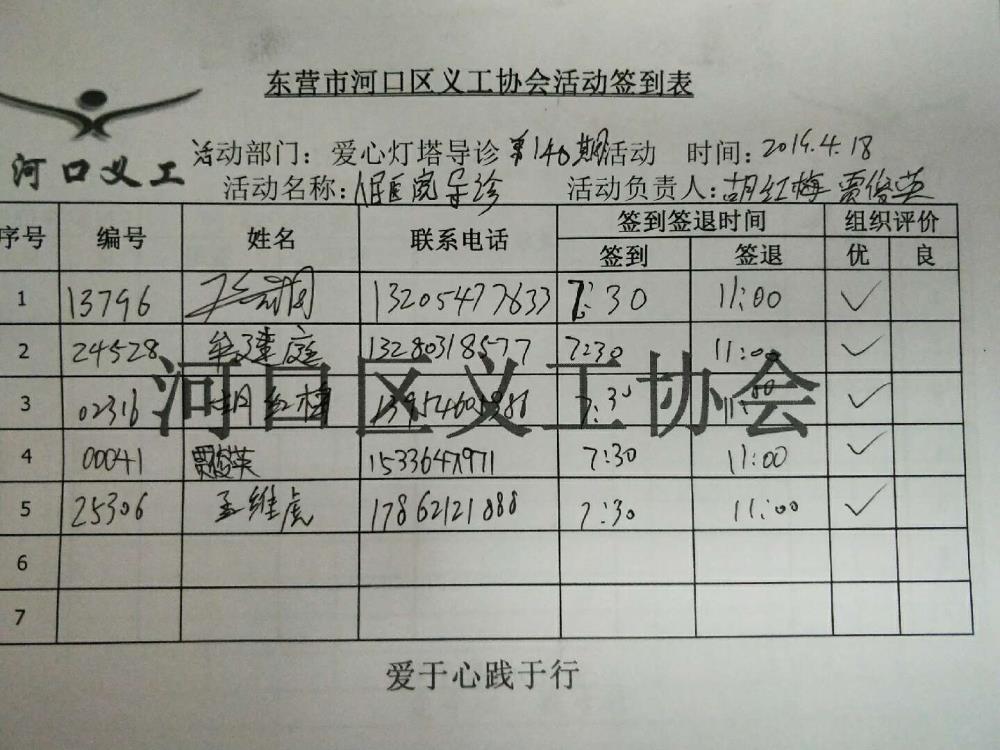 东营市河口区义工协会活动签到表
河口义工
活动部门：爱心灯塔导诊 第140期活动 时间：2019.4.18
活动名称：人民医院导诊 活动负责人：胡红梅 贾俊英
序号 编号 姓名 联系电话 签到签退时间 组织评价
签到 签退 优 良
1 13796 13205477633 7:30 11:00 ✓
2 24528 牟建庭 13280318577 7:30 11:00 ✓
3 02316 胡红梅 7:30 11:00 ✓
4 00041 贾俊英 15336471971 7:30 11:00 ✓
5 25306 孟维虎 17862121888 7:30 11:00 ✓
6
7
河口区义工协会
爱于心践于行